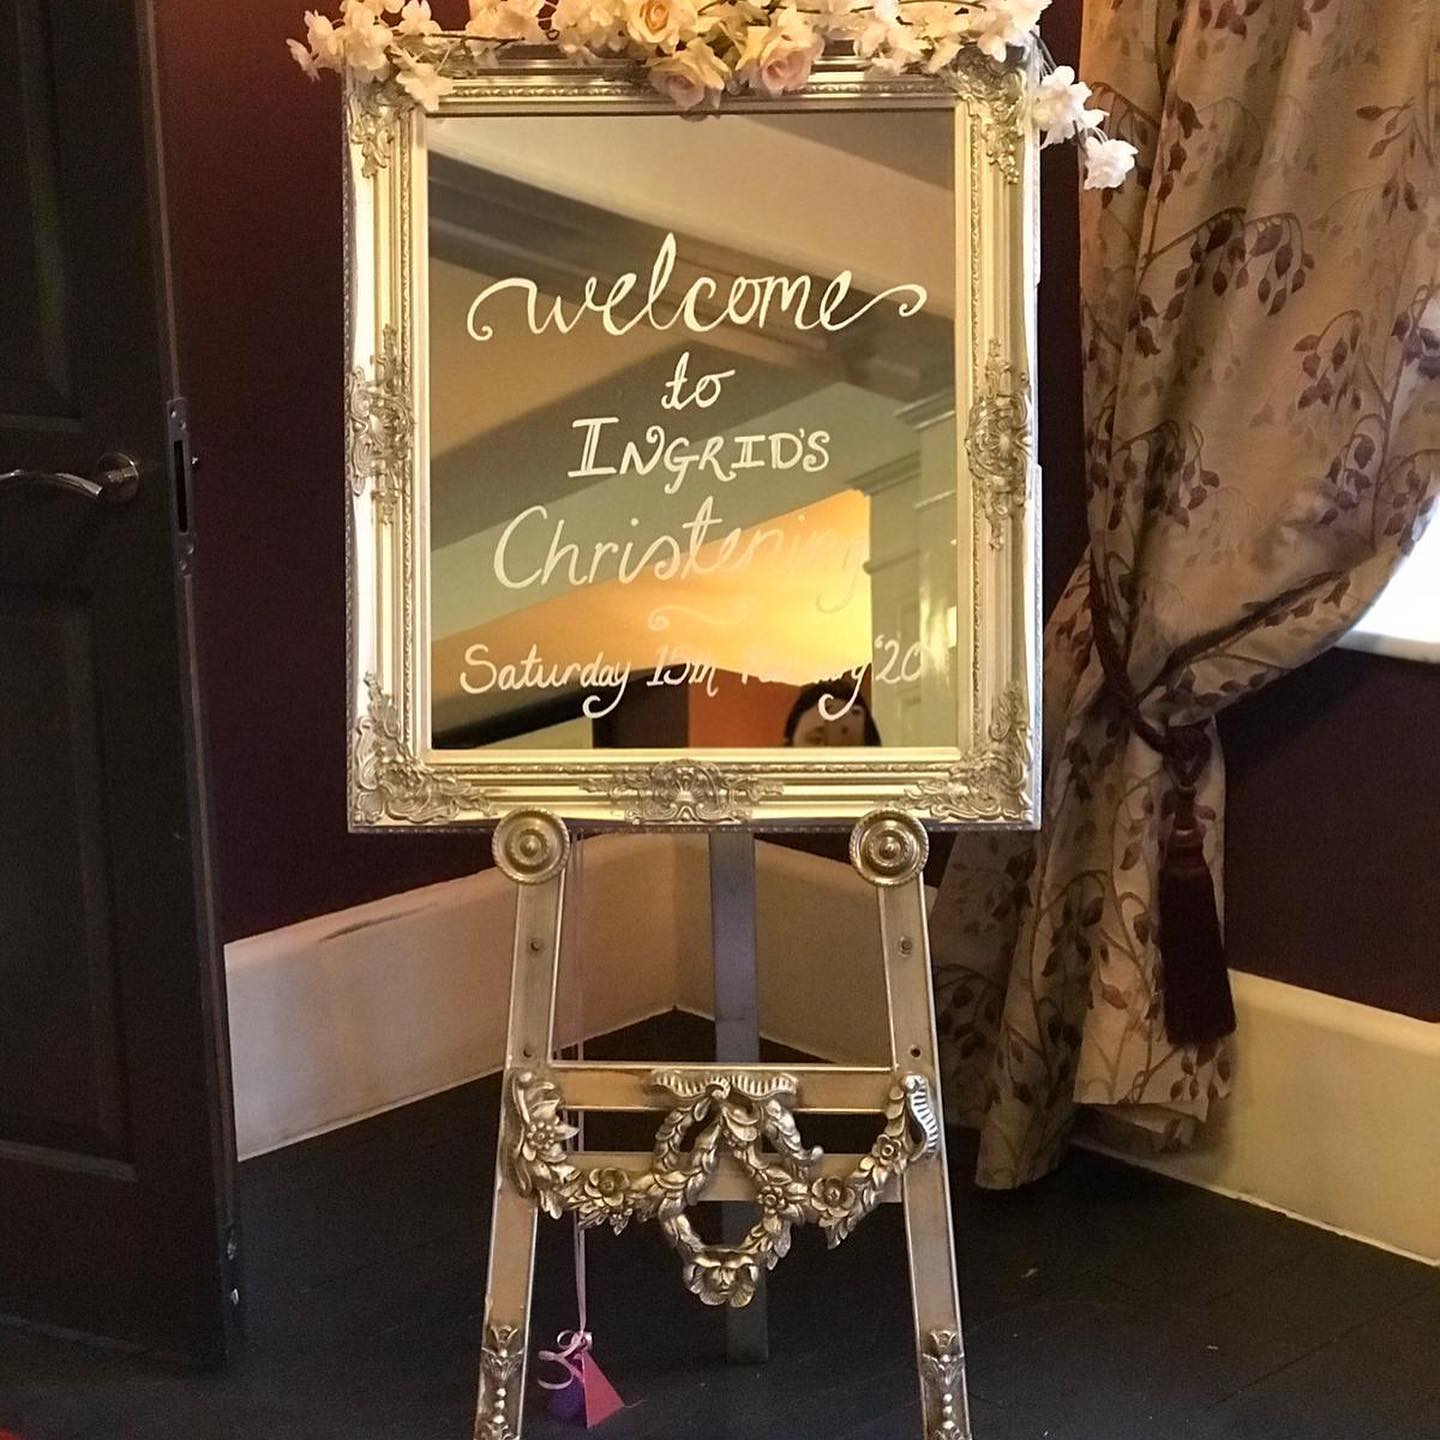 welcome
to
INGRID'S
Christening
Saturday 15th February '20